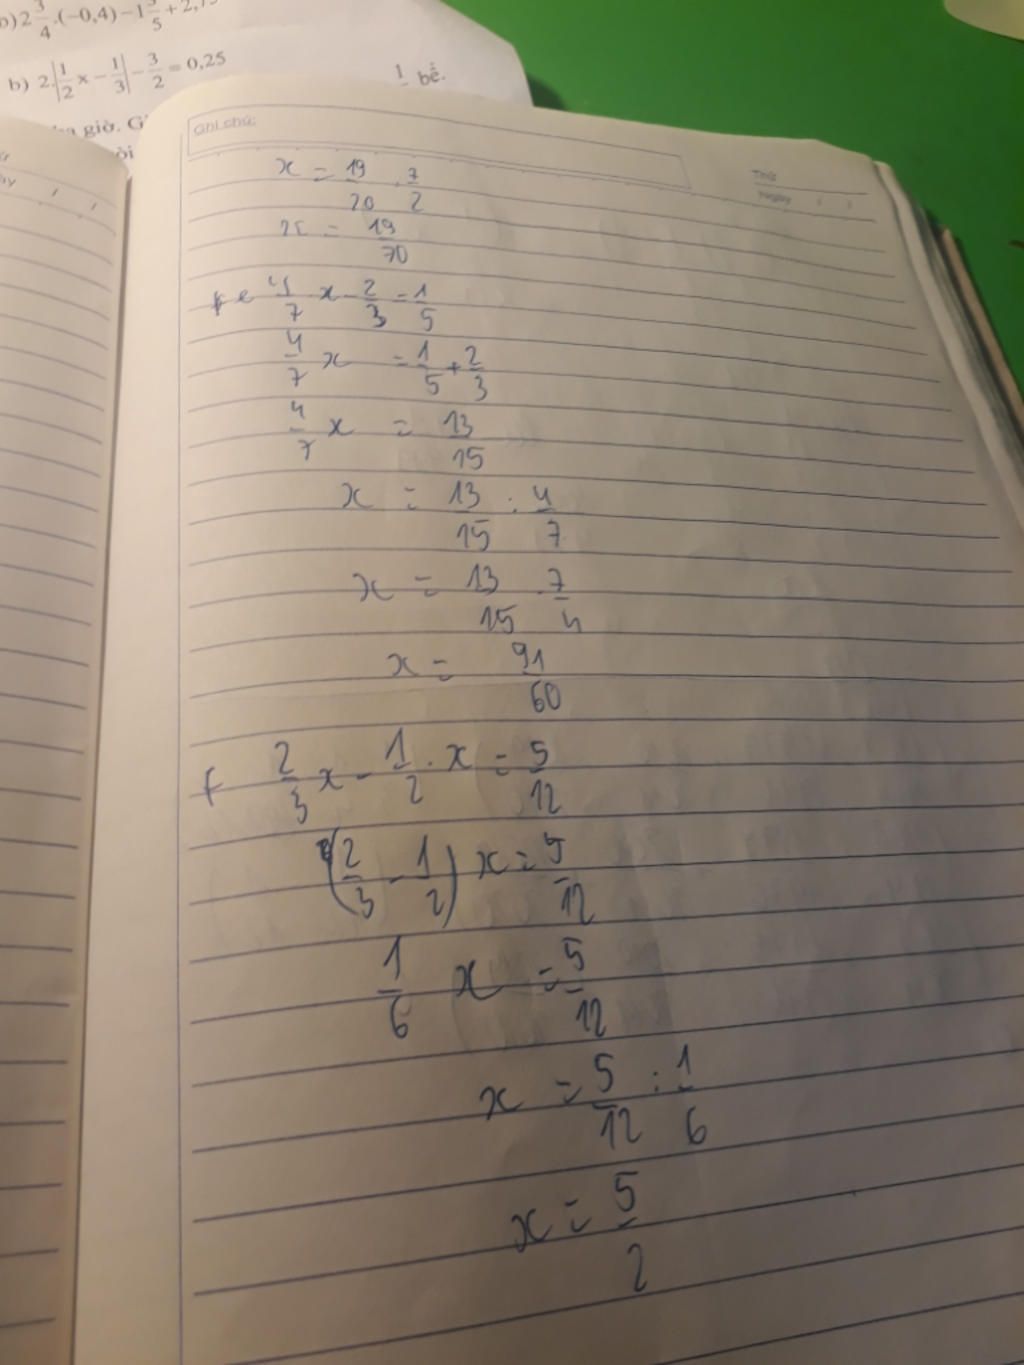 2 3/4 .(−0,4) − 1
5 + 2,
b) 2.|1/2 x − 1/3| − 3/2 = 0,25
1 bể.
giờ. G
Ghi chú:
Thứ
Ngày / /
x = 19/20 . 7/2
x = 19/70
e 4/7 x - 2/3 = 1/5
4/7 x = 1/5 + 2/3
4/7 x = 13/15
x = 13/15 : 4/7
x = 13/15 . 7/4
x = 91/60
f 2/3 x - 1/2 . x = 5/12
(2/3 - 1/2) x = 5/12
1/6 x = 5/12
x = 5/12 : 1/6
x = 5/2